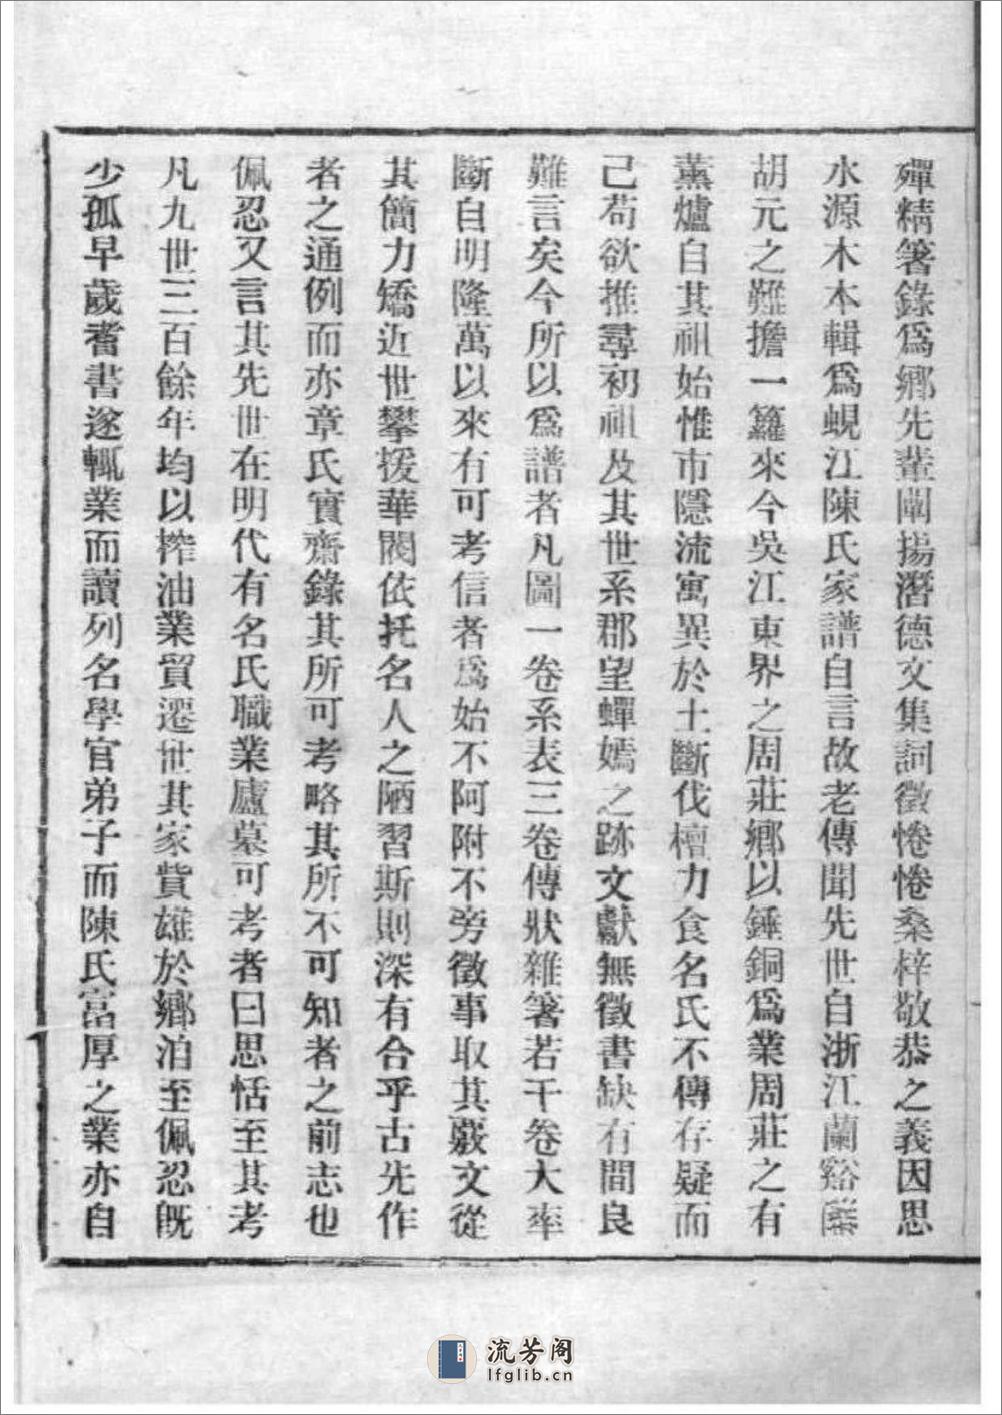 殫精箸錄爲鄉先輩闡揚潛德文集詞徵惓惓桑梓敬恭之義因思
水源木本輯爲蜆江陳氏家譜自言故老傳聞先世自浙江蘭谿
胡元之難擔一籮來今吳江東界之周莊鄉以錘銅爲業周莊之有
薰爐自其祖始惟市隱流寓異於土斷伐檀力食名氏不傳存疑而
己苟欲推尋初祖及其世系郡望蟬嫣之跡文獻無徵書缺有間良
難言矣今所以爲譜者凡圖一卷系表三卷傳狀雜箸若干卷大率
斷自明隆萬以來有可考信者爲始不阿附不旁徵事取其覈文從
其簡力矯近世攀援華閥依托名人之陋習斯則深有合乎古先作
者之通例而亦章氏實齋錄其所可考略其所不可知者之前志也
佩忍又言其先世在明代有名氏職業廬墓可考者曰思恬至其考
凡九世三百餘年均以榨油業貿遷世其家貲雄於鄉洎至佩忍旣
少孤早歲耆書遂輒業而讀列名學官弟子而陳氏富厚之業亦自
流芳阁
lfglib.cn